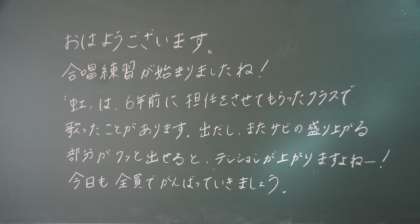 おはようございます。
合唱練習が始まりましたね!
「虹」は、6年前に担任をさせてもらったクラスで
歌ったことがあります。出だし、またサビの盛り上がる
部分がワッと出せると、テンションが上がりますよねー!
今日も全員でがんばっていきましょう。